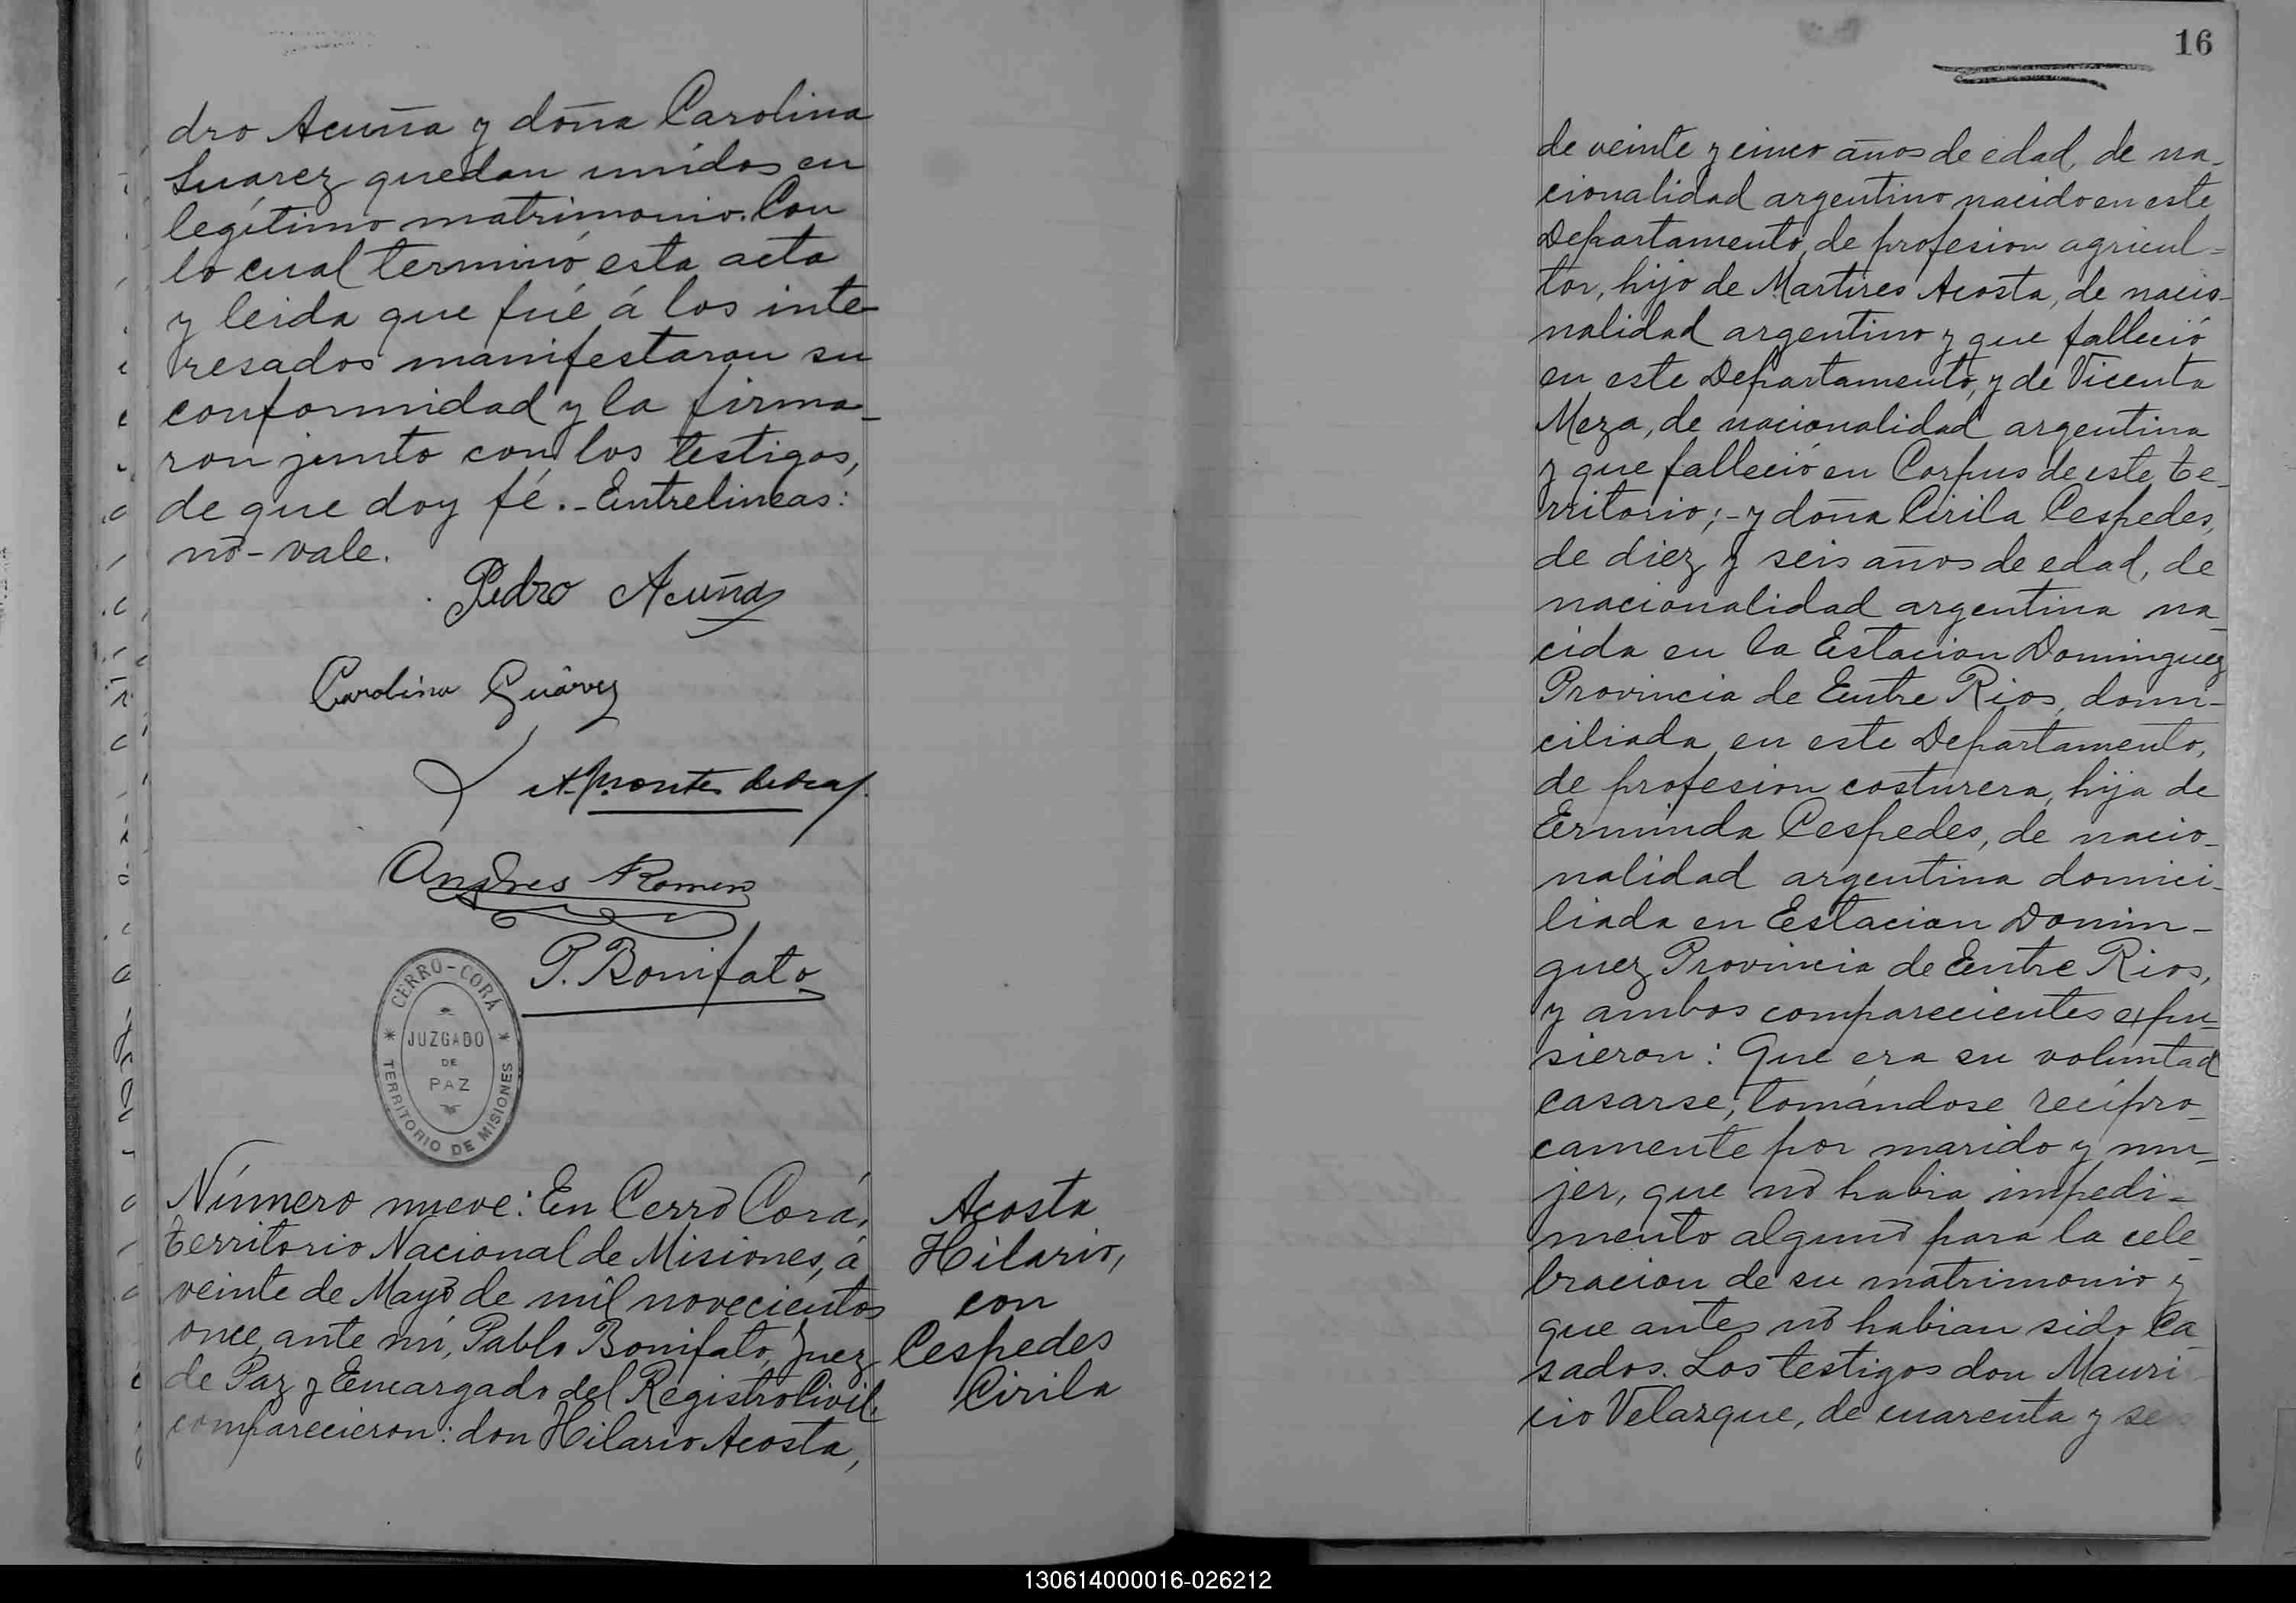 dro Acuña y doña Carolina
Suárez quedan unidos en
legítimo matrimonio. Con
lo cual terminó esta acta
y leida que fué á los inte-
resados manifestaron su
conformidad y la firma-
ron junto con los testigos,
de que doy fé. - Entrelineas:
nō - vale.
Pedro Acuña
Carolina Suárez
Andres Romero
P. Bonifato
CERRO-CORÁ
JUZGADO
DE
PAZ
TERRITORIO DE MISIONES
Número nueve: En Cerrō Corá,
territorio Nacional de Misiones, á
veinte de Mayō de mil novecientos
once, ante mi, Pablo Bonifato, Juez
de Paz y Encargado del Registro Civil,
comparecieron: don Hilario Acosta,
Acosta
Hilario,
con
Cespedes
Cirila
16
de veinte y cinco años de edad, de na-
cionalidad argentino nacido en este
Departamento, de profesion agricul-
tor, hijo de Martires Acosta, de nacio-
nalidad argentino y que falleció
en este Departamento, y de Vicenta
Meza, de nacionalidad argentina
y que falleció en Corpus de este te-
rritorio; - y doña Cirila Cespedes,
de diez y seis años de edad, de
nacionalidad argentina na-
cida en la Estacion Dominguez
Provincia de Entre Rios, domi-
ciliada en este Departamento,
de profesion costurera, hija de
Erminda Cespedes, de nacio-
nalidad argentina domici-
liada en Estacion Domin-
guez Provincia de Entre Rios,
y ambos comparecientes expu-
sieron: Que era su voluntad
casarse, tomándose recípro-
camente por marido y mu-
jer, que nō habia impedi-
mento algunō para la cele-
bracion de su matrimonio y
que antes nō habian sido ca-
sados. Los testigos don Mauri-
cio Velazque, de cuarenta y se
130614000016-026212